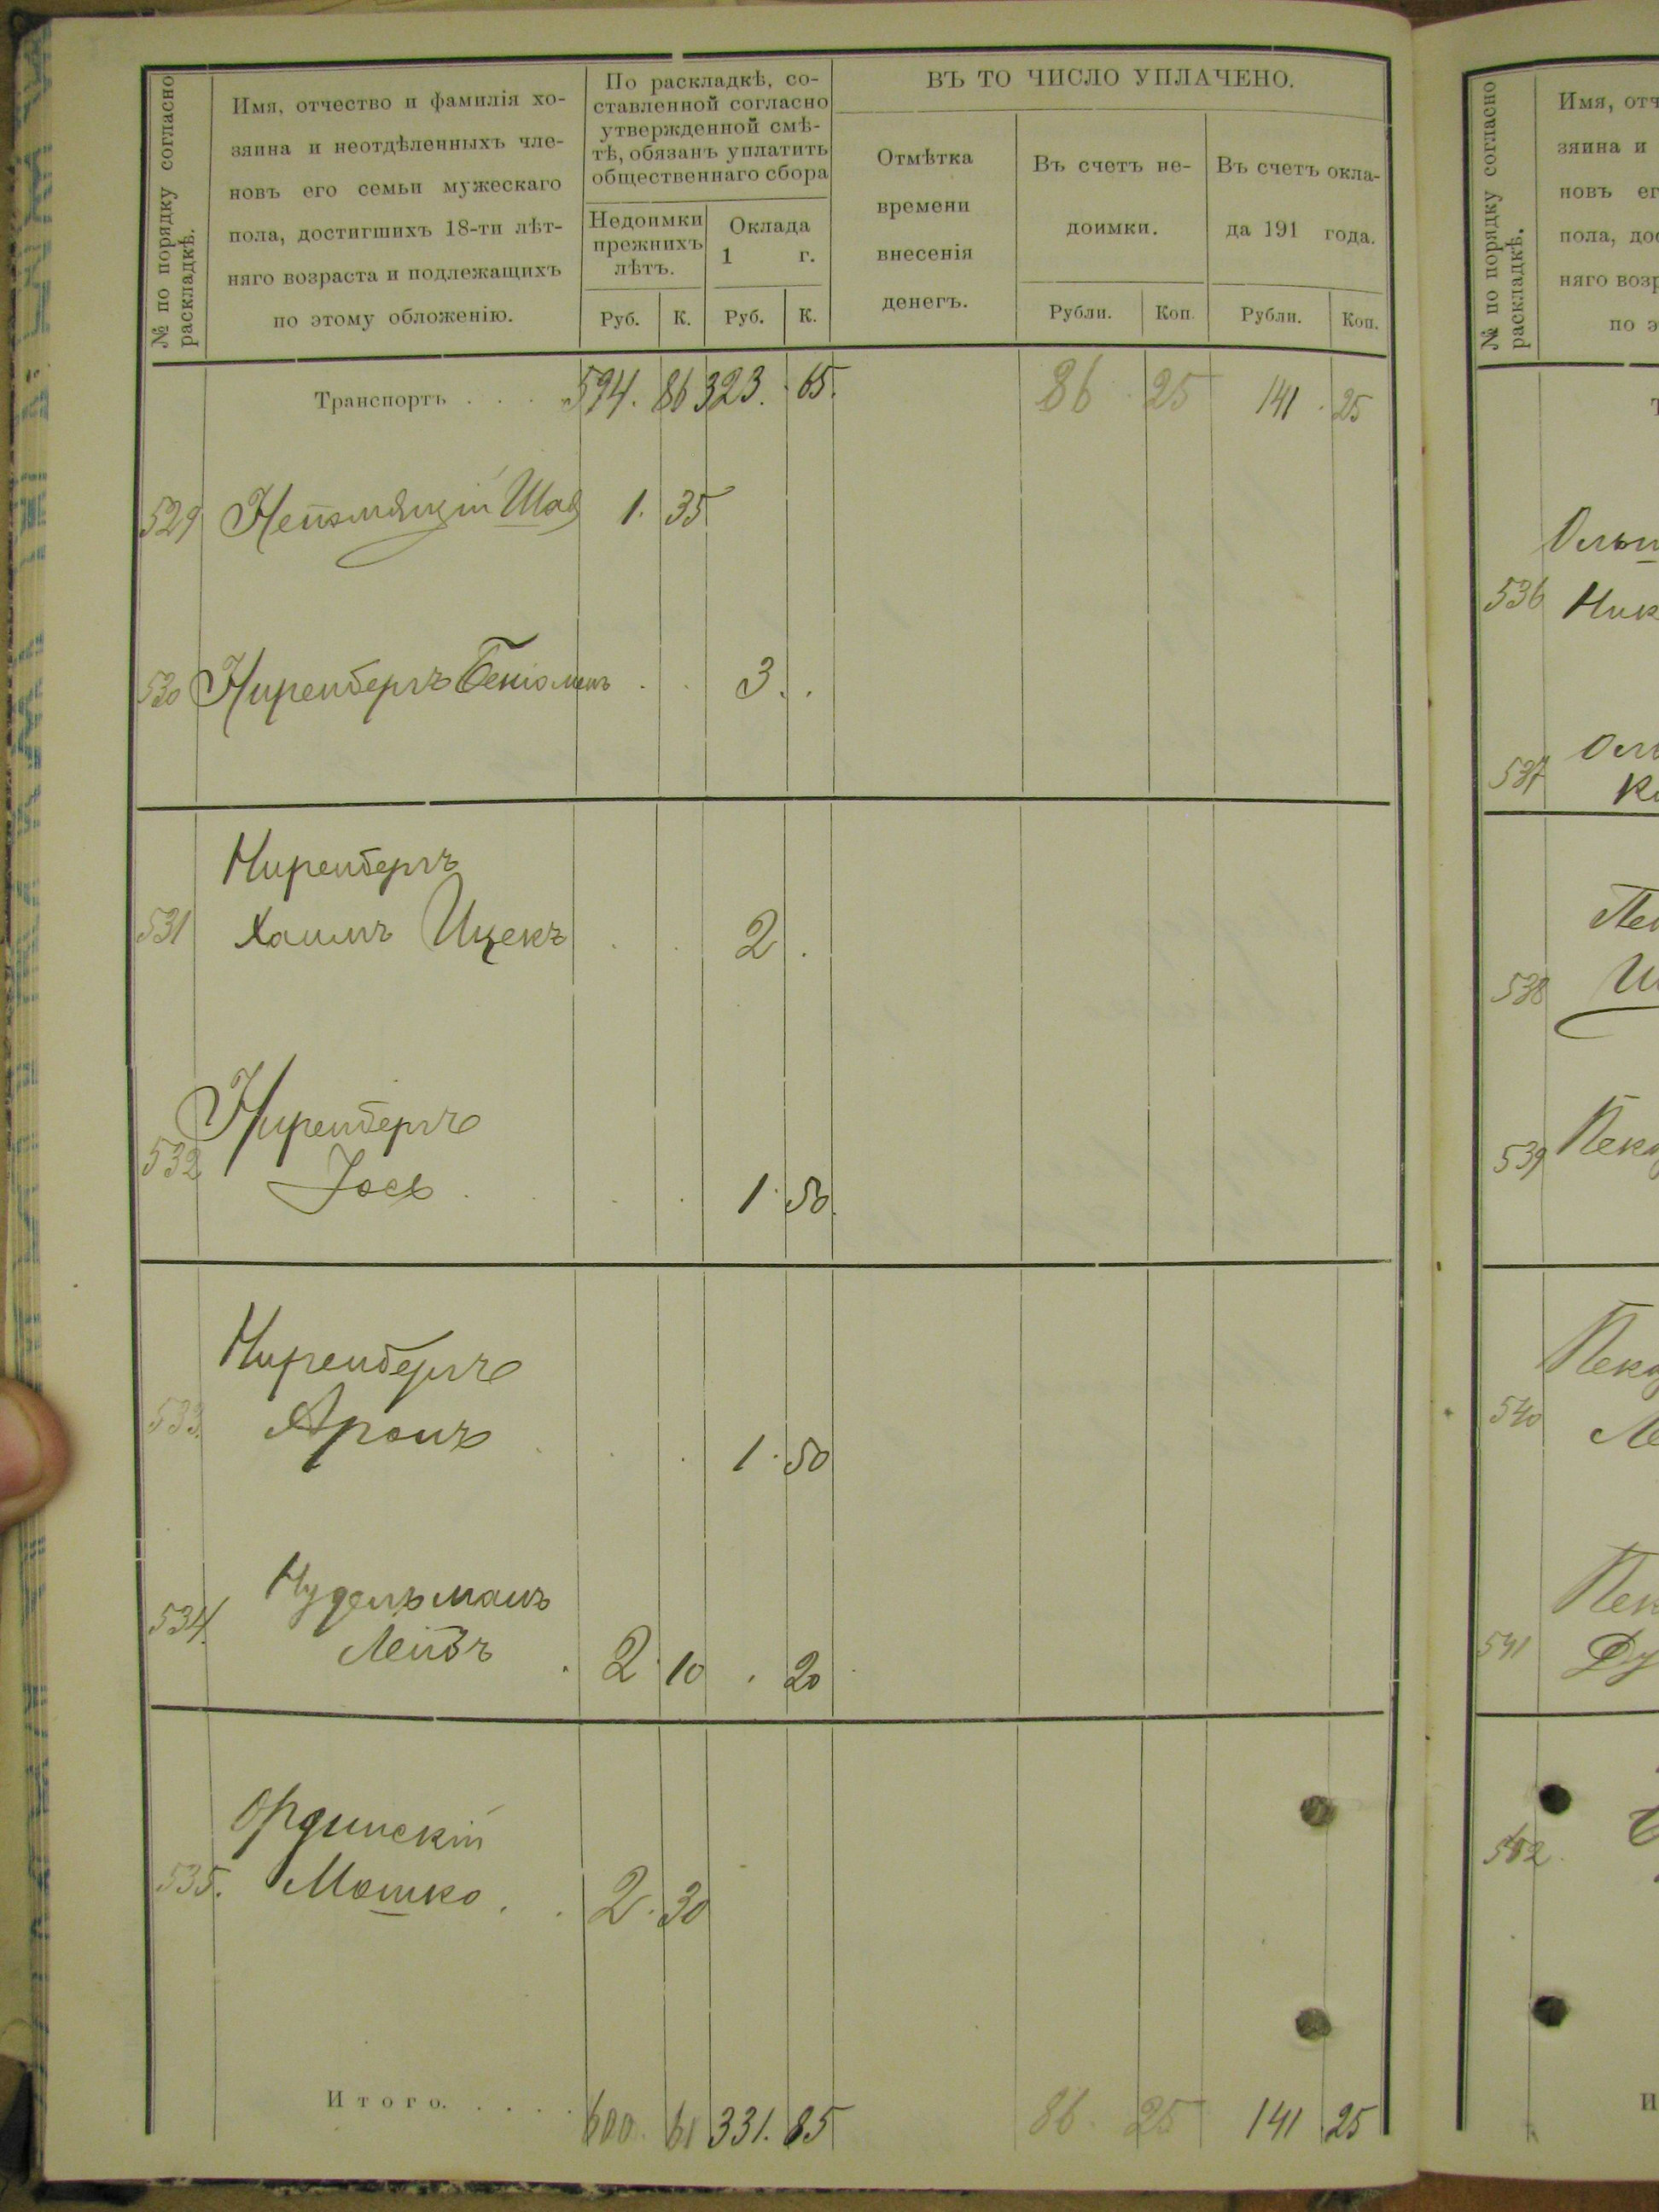 № по порядку согласно
раскладкѣ.
Имя, отчество и фамилія хо-
зяина и неотдѣленныхъ чле-
новъ его семьи мужескаго
пола, достигшихъ 18-ти лѣт-
няго возраста и подлежащихъ
по этому обложенію.
По раскладкѣ, со-
ставленной согласно
утвержденной смѣ-
тѣ, обязанъ уплатить
общественнаго сбора
Недоимки
прежнихъ
лѣтъ.
Оклада
1 г.
Руб. К. Руб. К.
ВЪ ТО ЧИСЛО УПЛАЧЕНО.
Отмѣтка
времени
внесенія
денегъ.
Въ счетъ не-
доимки.
Рубли. Коп.
Въ счетъ окла-
да 191 года.
Рубли. Коп.
Транспортъ . . . 594. 86 323. 65. 86 25 141. 25
529 Шая 1. 35
530 Ниренбергъ Беніоменъ . . 3. .
Ниренбергъ
531 Хаимъ Ицекъ . . 2 .
Ниренбергъ
532 Іосъ . . . 1. 50.
Ниренбергъ
533. Аронъ . . . 1. 50
Нудельманъ
534. Лейбъ . 2. 10 . 20
Ордынскій
535. Мошко . . 2. 30
Итого. . . . . 600. 61 331. 85 86. 25 141. 25
№ по порядку согласно
раскладкѣ.
Имя, отч
зяина и
новъ ег
пола, дос
няго возр
по э
536 Ник
537
538
539
540
541
542